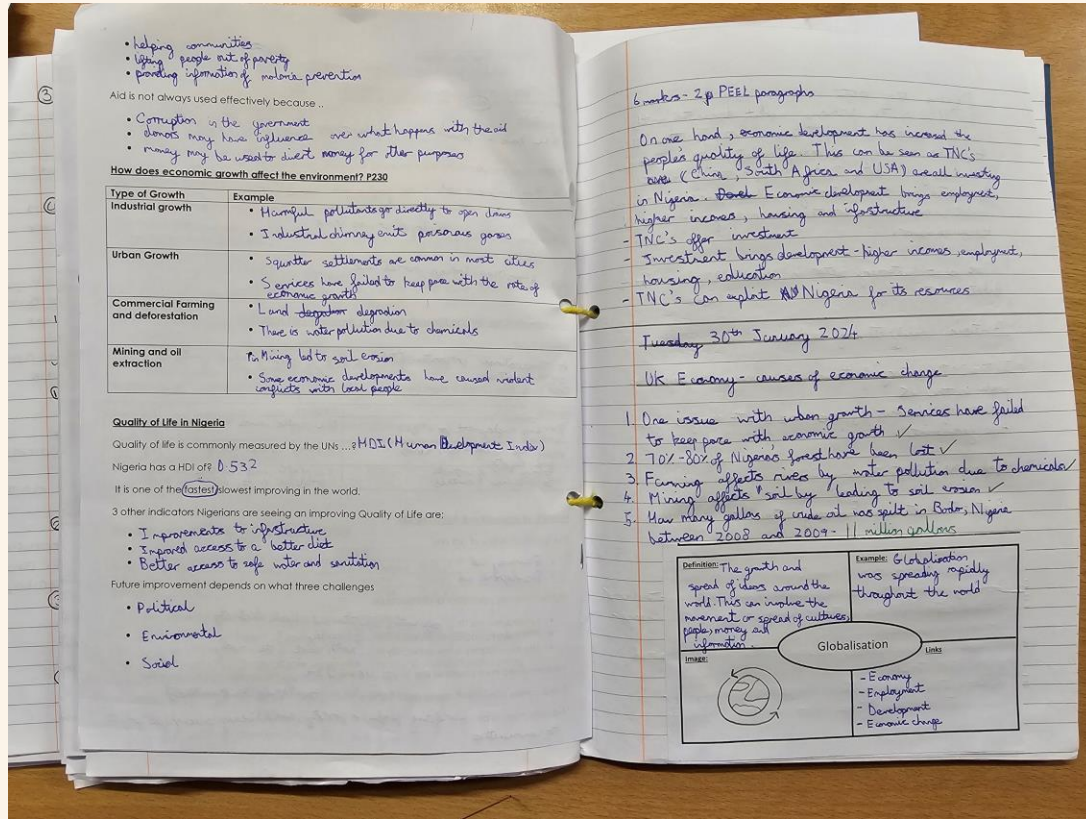 • helping communities
• lifting people out of poverty
• providing information of malaria prevention
Aid is not always used effectively because ..
• Corruption in the government
• donors may have influence over what happens with the aid
• money may be used to divert money for other purposes
How does economic growth affect the environment? P230
Type of Growth
Example
Industrial growth
• Harmful pollutants go directly to open drains
• Industrial chimney emit poisonous gases
Urban Growth
• Squatter settlements are common in most cities
• Services have failed to keep pace with the rate of
economic growth
Commercial Farming
and deforestation
• Land degradion
• There is water pollution due to chemicals
Mining and oil
extraction
Mining led to soil erosion
• Some economic developments have caused violent
conflicts with local people
Quality of Life in Nigeria
Quality of life is commonly measured by the UNs ...? HDI (Human Development Index)
Nigeria has a HDI of? 0.532
It is one of the fastest/slowest improving in the world.
3 other indicators Nigerians are seeing an improving Quality of Life are:
• Improvements to infrustructure
• Impored access to a better diet
• Better access to safe water and sanitation
Future improvement depends on what three challenges
• Political
• Enviromental
• Social
6 marks - 2 PEEL paragraphs
On one hand, economic development has increased the
people's quality of life. This can be seen as TNC's
(China, South Africa and USA) are all investing
in Nigeria. Economic development brings employment,
higher incomes, housing and infastructure
- TNC's offer investment
- Investment brings development - higher incomes, employment,
housing, education
- TNC's can exploit Nigeria for its resources
Tuesday 30th January 2024
UK Economy - causes of economic change
1. One issue with urban growth - Services have failed
to keep pace with economic growth ✓
2 70%-80% of Nigeria's forest have been lost ✓
3. Farming affects rivers by water pollution due to chemicals ✓
4. Mining affects soil by leading to soil erosion ✓
5. How many gallons of crude oil was spilt in Bodo, Nigeria
between 2008 and 2009 - 11 million gallons
Definition: The growth and
spread of ideas around the
world. This can involve the
movement or spread of cultures,
people, money and
information.
Example: Globalisation
was spreading rapidly
throughout the world
Globalisation
Image:
Links
- Economy
- Employment
- Development
- Economic change